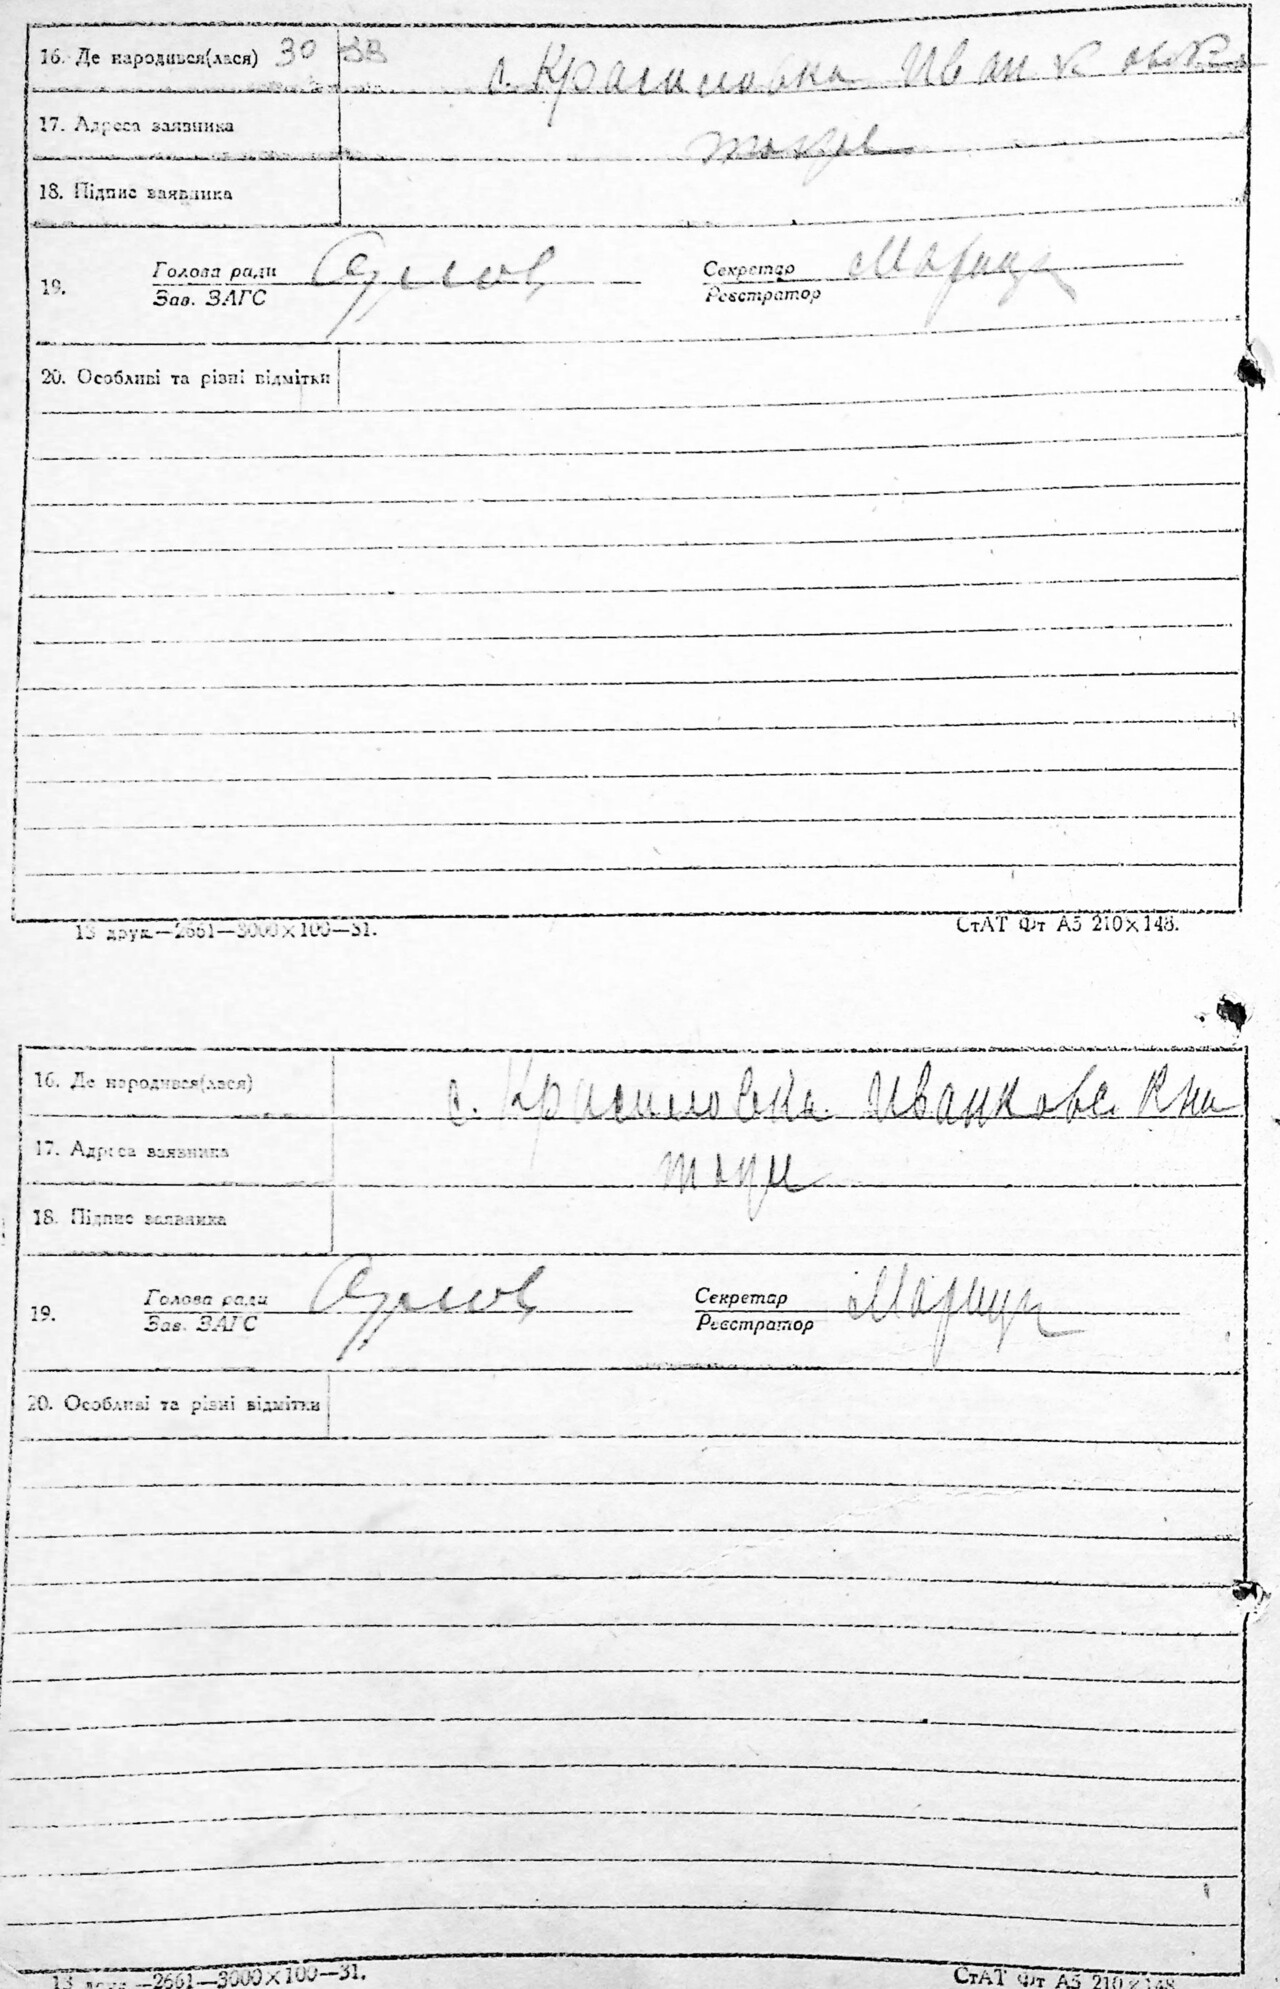 16. Де народився(лася) 30 зв с. Красиловка Иванковск
17. Адреса заявника
18. Підпис заявника
19. Голова ради Секретар
Зав. ЗАГС Реєстратор
20. Особливі та різні відмітки
13 друк.—2661—3000×100—31. СтАТ Фт А5 210×148.
16. Де народився(лася) с. Красиловка Иванковс. Рна
17. Адреса заявника
18. Підпис заявника
19. Голова ради Секретар
Зав. ЗАГС Реєстратор
20. Особливі та різні відмітки
13 друк.—2661—3000×100—31. СтАТ Фт А5 210×148